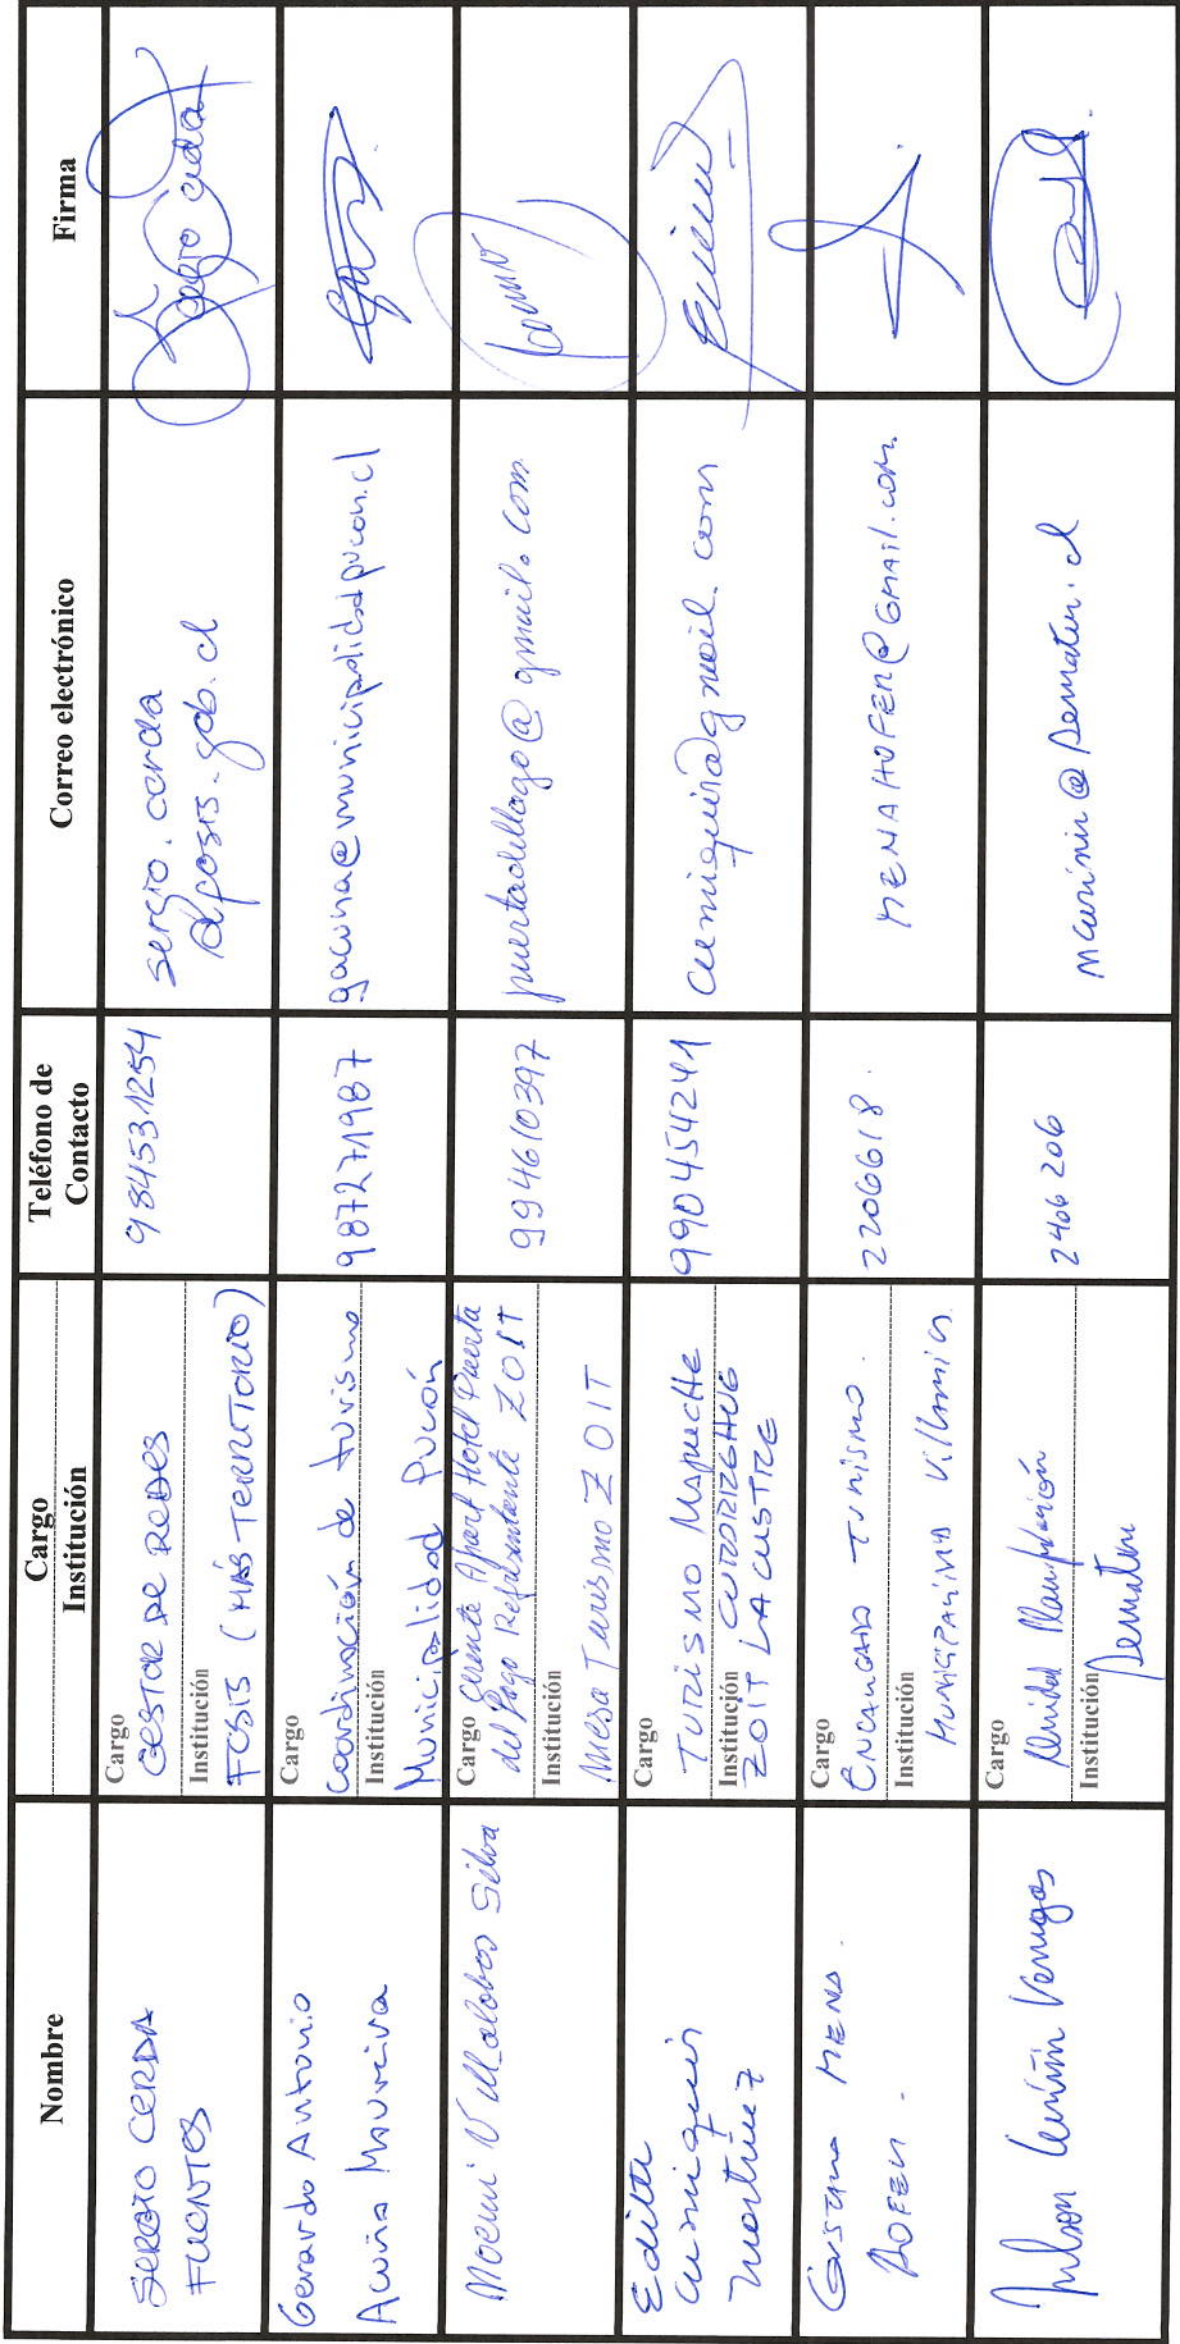 Nombre
Cargo
Institución
Teléfono de
Contacto
Correo electrónico
Firma
SERGIO CERDA
FUENTES
Cargo
GESTOR DE REDES
Institución
FOSIS (MÁS TERRITORIO)
984531254
sergio.cerda
@fosis.gob.cl
Sergio Cerda
Gerardo Antonio
Acuña
Cargo
Coordinación de turismo
Institución
Municipalidad Pucón
987271987
gacuna@municipalidadpucon.cl
Noemi Villalobos Silva
Cargo Gerente Apart Hotel Puerta
del Lago Representante ZOIT
Institución
Mesa Turismo ZOIT
994610397
puertadellago@gmail.com
Edith
Curiqueo
Martinez
Cargo
TURISMO MAPUCHE
Institución CURARREHUE
ZOIT LACUSTRE
990454241
MENA
HOFER.
Cargo
ENCARGADO TURISMO.
Institución
MUNICIPALIDAD Villarrica
2206618.
MENAHOFER@GMAIL.COM.
Curiñir Venegas
Cargo
Unidad Planificación
Institución
Sernatur
2406 206
mcurinir@sernatur.cl